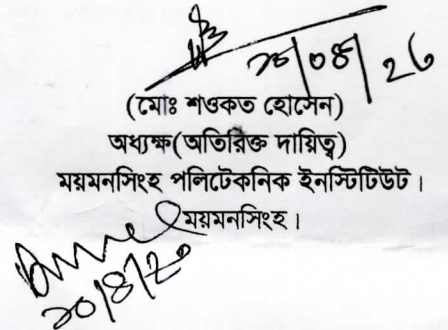 ২০/০৪/২৬
(মোঃ শওকত হোসেন)
অধ্যক্ষ(অতিরিক্ত দায়িত্ব)
ময়মনসিংহ পলিটেকনিক ইনস্টিটিউট।
ময়মনসিংহ।